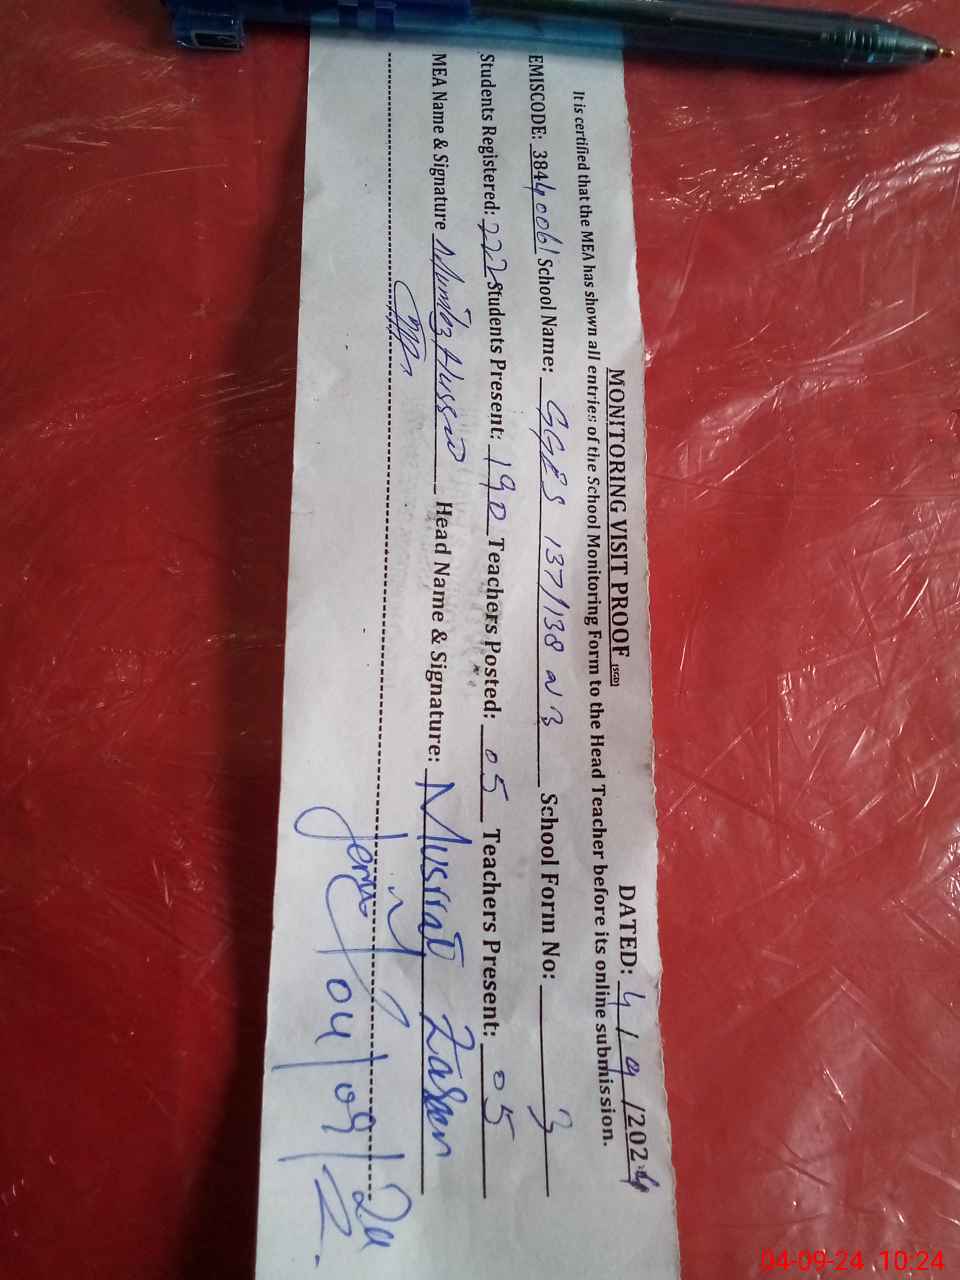 MONITORING VISIT PROOF (SGD) DATED: 4/9/2024
It is certified that the MEA has shown all entries of the School Monitoring Form to the Head Teacher before its online submission.
EMISCODE: 38440061 School Name: GGPS 137/138 NB School Form No: 3
Students Registered: 222 Students Present: 190 Teachers Posted: 05 Teachers Present: 05
MEA Name & Signature Mumtaz Hussain Head Name & Signature: Musrrat
04/09/24
04-09-24 10:24